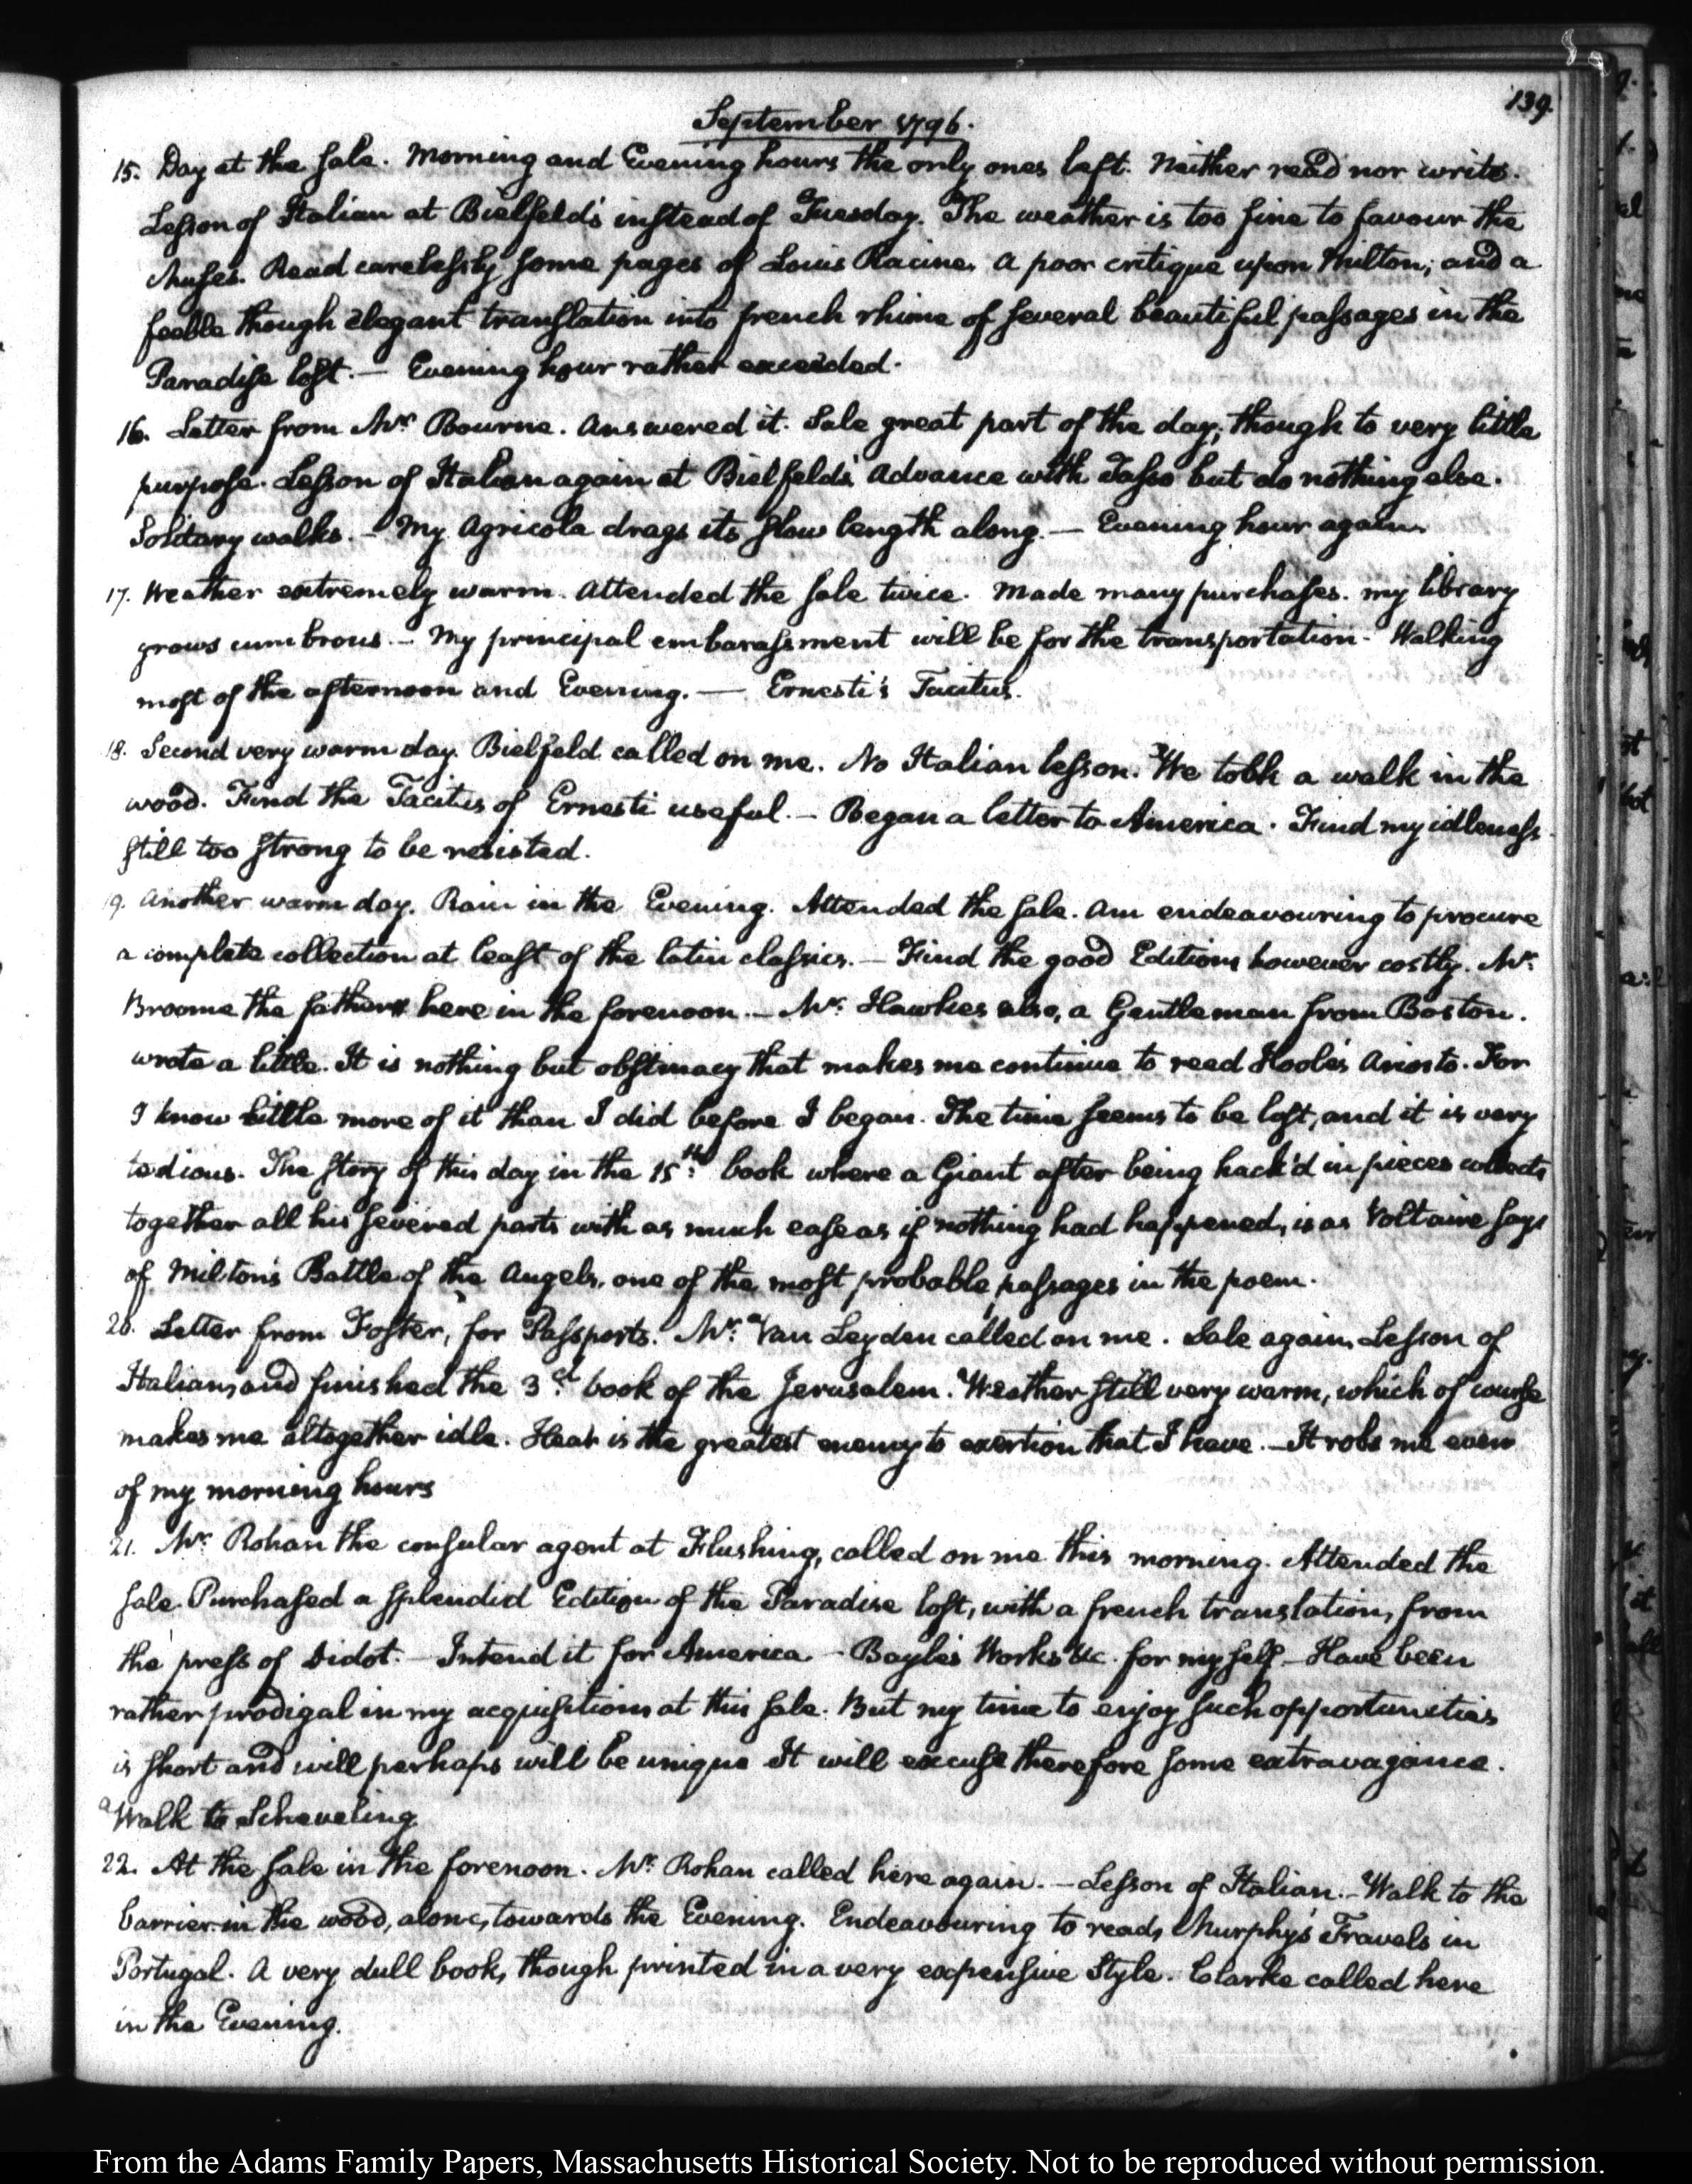 139.
September 1796.
15. Day at the sale. Morning and Evening hours the only ones left. Neither read nor write.
Lesson of Italian at Bielfeld's instead of Tuesday. The weather is too fine to favour the
Muses. Read carelessly some pages of Louis Racine. A poor critique upon Milton; and a
feeble though elegant translation into french rhime of several beautiful passages in the
Paradise lost. — Evening hour rather exceeded.
16. Letter from Mr. Bourne. Answered it. Sale great part of the day, though to very little
purpose. Lesson of Italian again at Bielfeld's Advance with Tasso but do nothing else.
Solitary walks. — My Agricola drags its slow length along. — Evening hour again.
17. Weather extremely warm. Attended the sale twice. Made many purchases. my library
grows cumbrous. — My principal embarassment will be for the transportation - Walking
most of the afternoon and Evening. — Ernesti's Tacitus.
18. Second very warm day. Bielfeld called on me. No Italian lesson. We took a walk in the
wood. Find the Tacitus of Ernesti useful. — Began a letter to America. Find my idleness
still too strong to be resisted.
19. Another warm day. Rain in the Evening. Attended the sale. Am endeavouring to procure
a complete collection at least of the latin classics. — Find the good Editions however costly. Mr.
Broome the father here in the forenoon. — Mr. Hawkes also, a Gentleman from Boston.
wrote a little. It is nothing but obstinacy that makes me continue to read Hoole's Ariosto. For
I know little more of it than I did before I began. The time seems to be lost, and it is very
tedious. The story of this day in the 15th. book where a Giant after being hack'd in pieces collects
together all his severed parts with as much ease as if nothing had happened, is as Voltaire says
of Milton's Battle of the Angels, one of the most probable passages in the poem.
20. Letter from Foster, for Passports. Mr. Van Leyden called on me. Sale again. Lesson of
Italian, and finished the 3d. book of the Jerusalem. Weather still very warm, which of course
makes me altogether idle. Heat is the greatest enemy to exertion that I have. — It robs me even
of my morning hours
21. Mr. Rohan the consular agent at Flushing, called on me this morning. Attended the
sale. Purchased a splendid Edition of the Paradise lost, with a french translation, from
the press of Didot. — Intend it for America — Bayle's Works &c. for myself — Have been
rather prodigal in my acquisitions at this sale. But my time to enjoy such opportunities
is short and will perhaps will be unique It will excuse therefore some extravagance.
Walk to Scheveling.
22. At the sale in the forenoon. Mr. Rohan called here again. — Lesson of Italian. — Walk to the
barrier in the wood, alone, towards the Evening. Endeavouring to read, Murphy's Travels in
Portugal. A very dull book, though printed in a very expensive Style. Clarke called here
in the Evening.
From the Adams Family Papers, Massachusetts Historical Society. Not to be reproduced without permission.